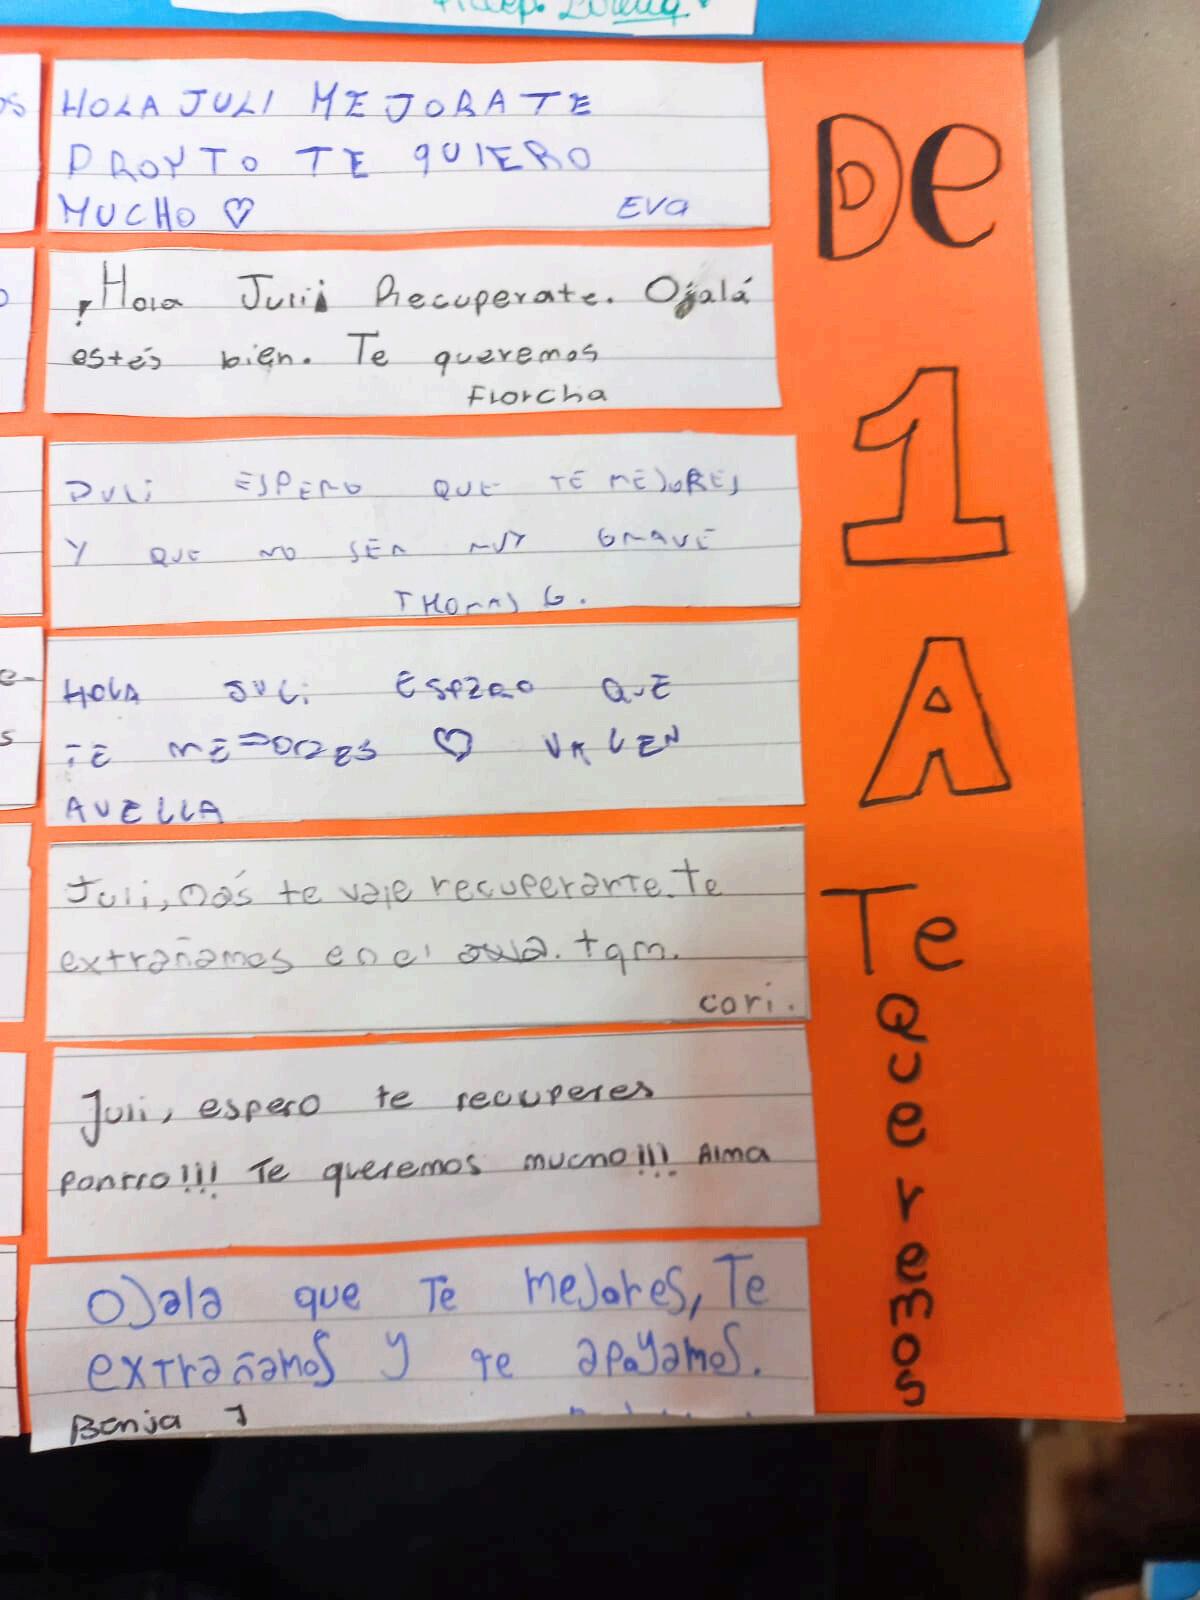 HOLA JULI MEJORATE
PRONTO TE QUIERO
MUCHO ♡ EVA
¡Hola Juli¡ Recuperate. Ojalá
estés bien. Te queremos
Florcha
JULI ESPERO QUE TE MEJORES
Y QUE NO SEA MUY GRAVE
THOMAS G.
HOLA JULI ESPERO QUE
TE MEJORES ♡ VALEN
AVELLA
Juli, más te vale recuperarte. te
extrañamos en el aula. tqm.
cori.
Juli, espero te recuperes
pontro!!! Te queremos mucho!!! Alma
Ojala que Te mejores, Te
extrañamos y te apoyamos.
Benja J
De
1
A
Te
Queremos